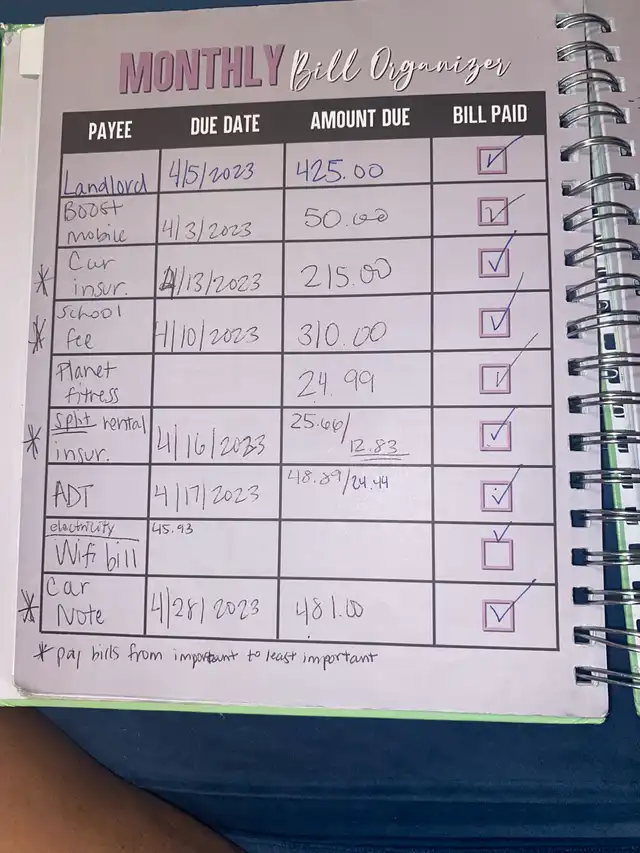 MONTHLY Bill Organizer
PAYEE DUE DATE AMOUNT DUE BILL PAID
Landlord 4/5/2023 425.00
Boost
mobile 4/3/2023 50.00
* Car
insur. 4/13/2023 215.00
* School
fee 4/10/2023 310.00
Planet
fitness 24.99
* split rental 25.66/
insur. 4/16/2023 12.83
ADT 4/17/2023 48.89/24.44
electricity 45.93
Wifi bill
* Car
Note 4/28/2023 481.00
* pay bills from important to least important